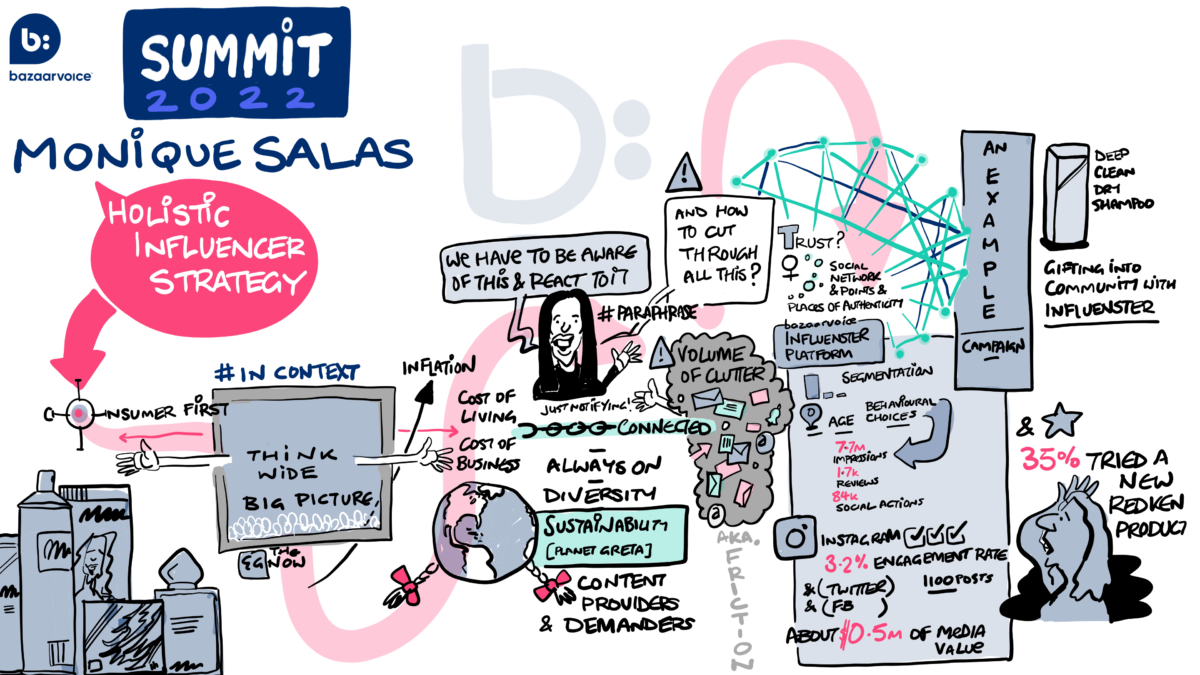 b:
bazaarvoice
SUMMIT
2022
MONIQUE SALAS
HOLISTIC
INFLUENCER
STRATEGY
CONSUMER FIRST
#IN CONTEXT
THINK
WIDE
BIG PICTURE,
EG THE
NOW
INFLATION
COST OF
LIVING
COST OF
BUSINESS
b:
WE HAVE TO BE AWARE
OF THIS & REACT TO IT
#PARAPHRASE
JUST NOTIFYING!
AND HOW
TO CUT
THROUGH
ALL THIS?
CONNECTED
ALWAYS ON
DIVERSITY
SUSTAINABILITY
[PLANET GRETA]
CONTENT
PROVIDERS
& DEMANDERS
VOLUME
OF CLUTTER
@
@
AKA.
FRICTION
TRUST?
SOCIAL
NETWORK
& POINTS &
PLACES OF AUTHENTICITY
bazaarvoice
INFLUENSTER
PLATFORM
SEGMENTATION
AGE
BEHAVIOURAL
CHOICES
7.7M
IMPRESSIONS
1.7K
REVIEWS
84K
SOCIAL ACTIONS
INSTAGRAM
3.2% ENGAGEMENT RATE
& (TWITTER)
& (FB )
1100 POSTS
ABOUT $0.5M OF MEDIA
VALUE
AN
EXAMPLE
CAMPAIGN
DEEP
CLEAN
DRY
SHAMPOO
GIFTING INTO
COMMUNITY WITH
INFLUENSTER
&
35% TRIED A
NEW
REDKEN
PRODUCT